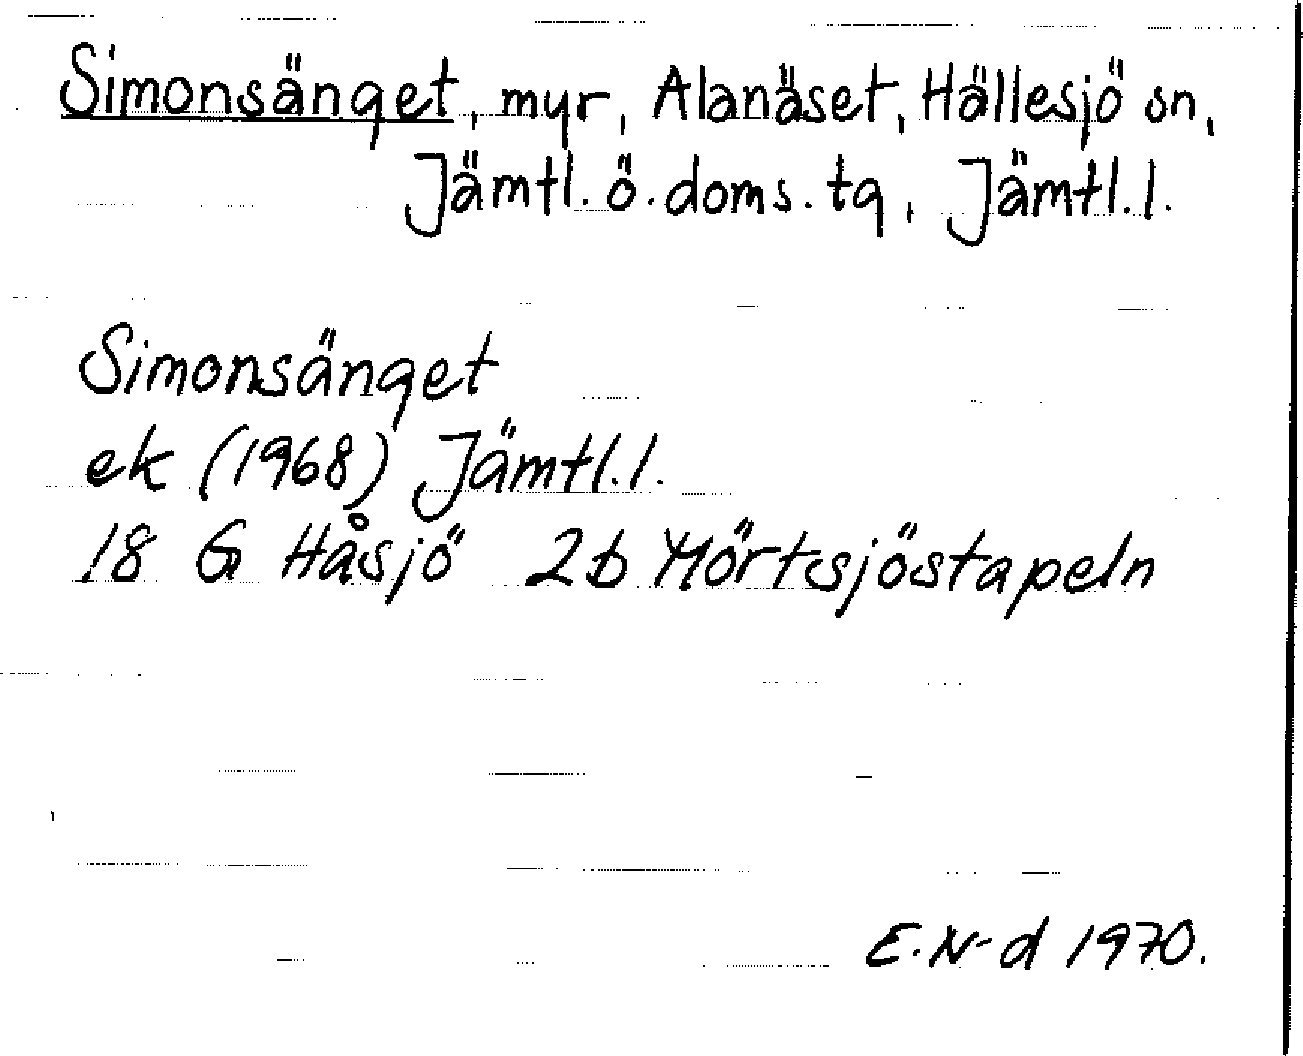 Simonsänget, myr, Alanäset, Hällesjö sn,
Jämtl. ö. doms. tg, Jämtl. l.
Simonsänget
ek (1968) Jämtl. l.
18 G Håsjö 2b Mörtsjöstapeln
E. N-d 1970.